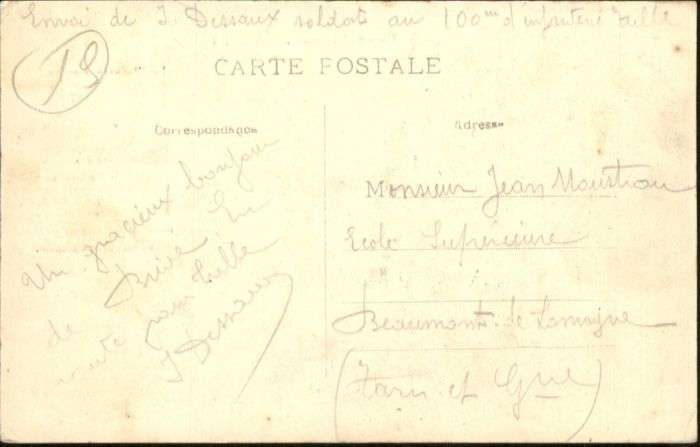 Envoi de J. Dessaux soldat au 100me d'infanterie Tulle
CARTE POSTALE
Correspondance
Adresse
Un gracieux bonjour
de Brive. En
route pour Tulle
J Dessaux
Monsieur Jean
Ecole Supérieure
Beaumont de Lomagne
(Tarn et Gne)